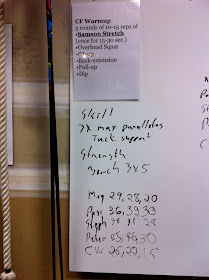 CF Warmup
3 rounds of 10-15 reps of
•Samson Stretch
(once for 15-30 sec.)
•Overhead Squat
•Back-extension
•Pull-up
•Dip
Skill
3x max parallettes
Tuck support
Strength
Bench 3x5
Meg 29, 28, 20
36, 39, 30
Steph 38 31 28
Peter 45, 46, 30
CW 25, 22, 15